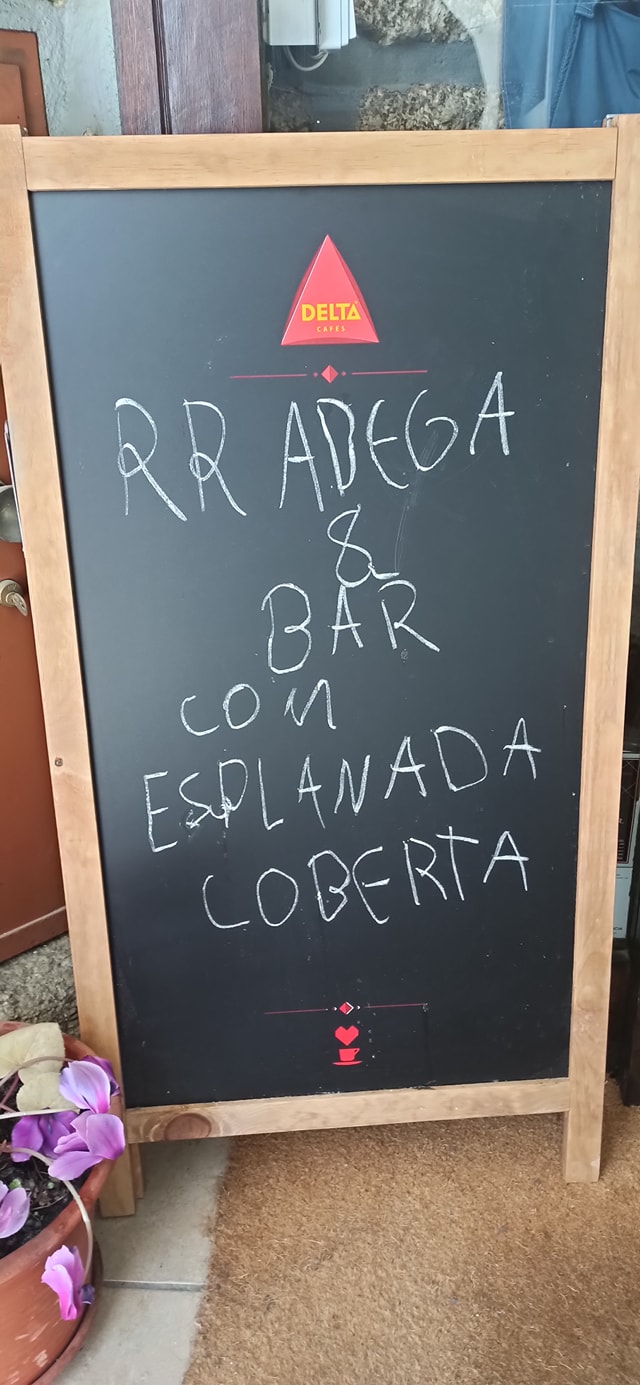 DELTA
CAFÉS
RR ADEGA
&
BAR
COM
ESPLANADA
COBERTA